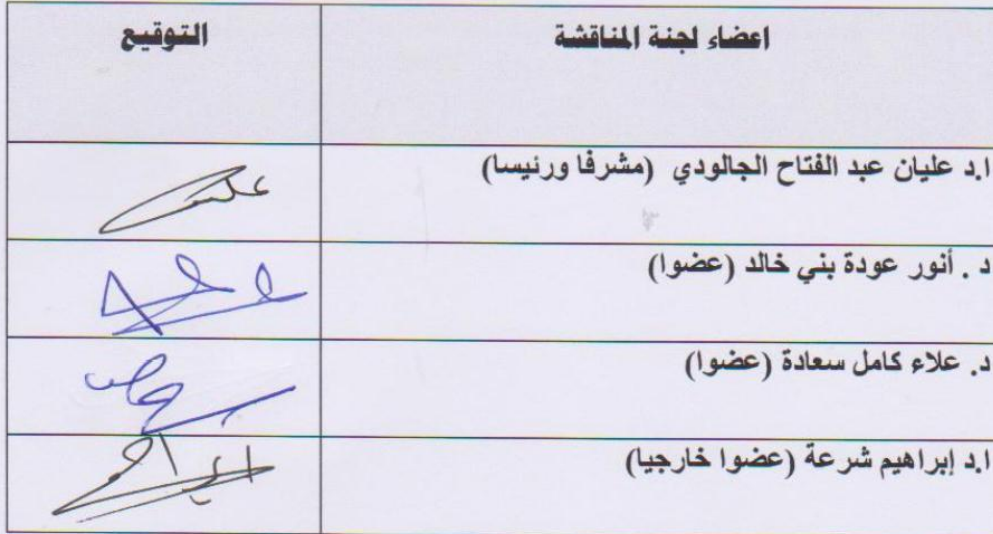 اعضاء لجنة المناقشة التوقيع
ا.د عليان عبد الفتاح الجالودي (مشرفا ورئيسا)
د . أنور عودة بني خالد (عضوا)
د. علاء كامل سعادة (عضوا)
ا.د إبراهيم شرعة (عضوا خارجيا)